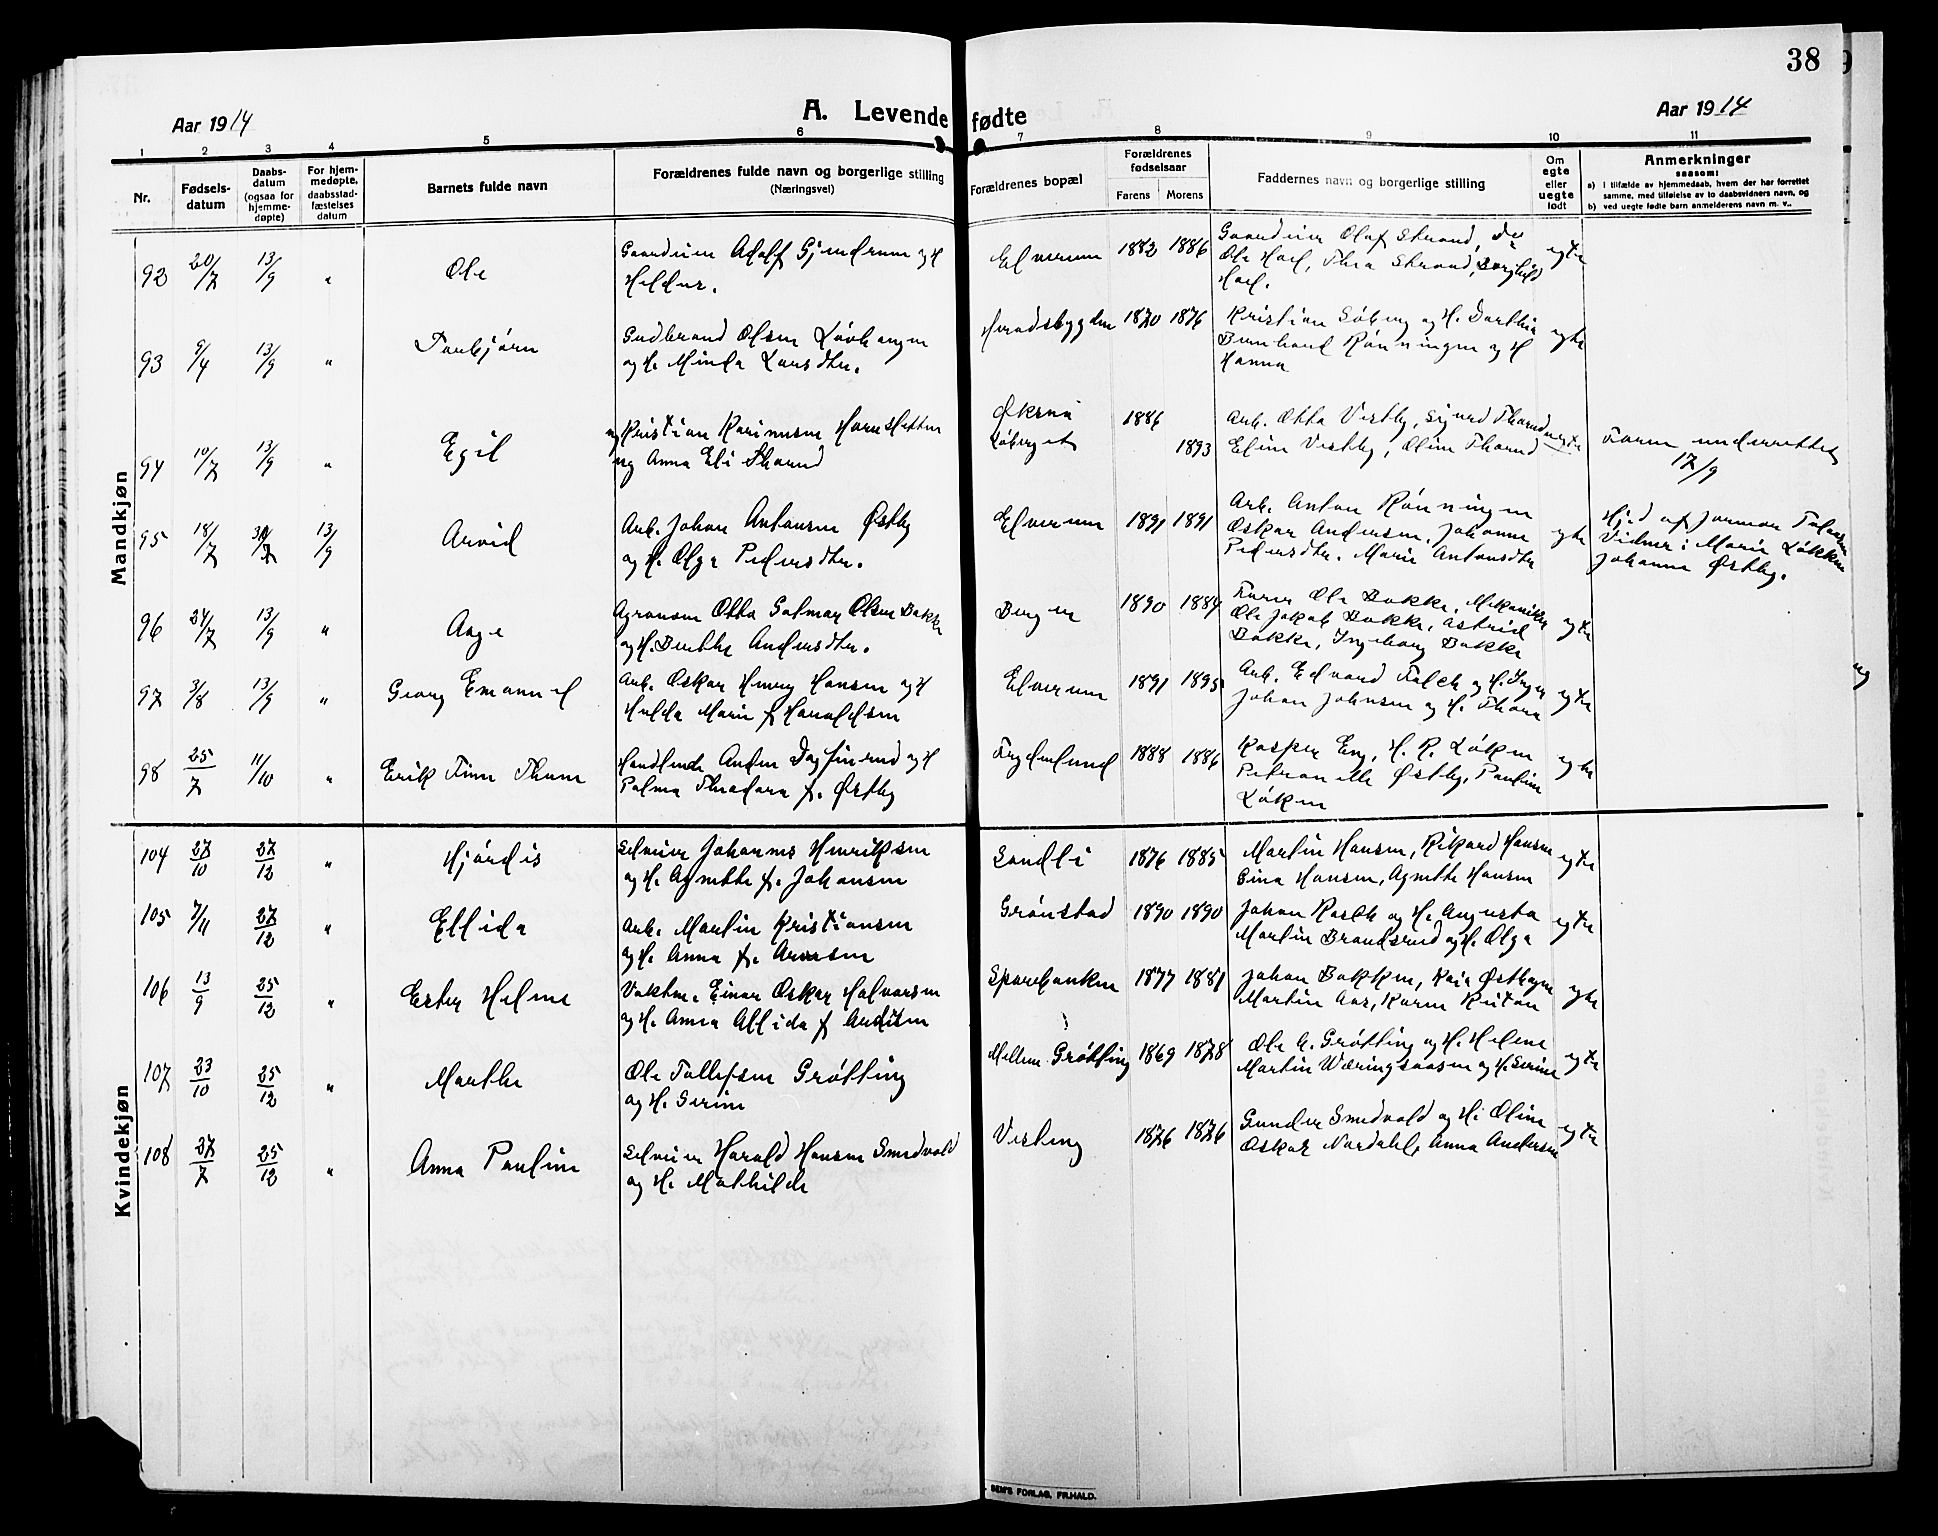 38
Aar 1914
A. Levende fødte
Aar 1914
1 2 3 4 5 6 7 8 9 10 11
Nr.
Fødsels-
datum
Daabs-
datum
(ogsaa for
hjemme-
døpte)
For hjem-
medøpte,
daabsstad-
fæstelses
datum
Barnets fulde navn
Forældrenes fulde navn og borgerlige stilling
(Næringsvei)
Forældrenes bopæl
Forældrenes
fødselsaar
Farens Morens
Faddernes navn og borgerlige stilling
Om
egte
eller
uegte
født
Anmerkninger
saasom:
a) i tilfælde av hjemmedaab, hvem der har forrettet
samme, med tilføielse av to daabsvidners navn, og
b) ved uegte fødte barn anmelderens navn m. v..
Mandkjøn
92 20/7 13/9 " Ole
Gaardeier Adolf Gjendrum og H
Helder.
Elverum 1882 1886
Gaardeier Olaf Strand,
Ole Hoel, Thea Strand, Borghild
Hoel.
egte
93 9/4 13/9 " Torbjørn
Gudbrand Olsen Løvhaugen
og H. Minda Larsdtr.
Heradsbygden 1870 1876
Kristian Søberg og H. Dorthia
Bernhard Rønningen og H
Hanna
egte
94 10/7 13/9 " Egil
Kristian Karinusen Hornsletten
og Anna Eli Thorud
Øksnaa
Løberget
1886
1893
Arb. Otto Vestby, Sigurd Thorud
Eline Vestby, Oline Thorud
uegte
Faren underrettet
17/9
95 18/7 30/7 13/9 Arvid
Arb. Johan Antonsen Østby
og H. Olga Pedersdtr.
Elverum 1891 1891
Arb. Anton Rønningen
Oskar Andersen, Johanne
Pedersdtr. Marie Antonsdtr
egte
Hjd af Jormor
Vidner: Marie Løkken
Johanne Østby.
96 24/7 13/9 " Aage
Agronom Otto Golmar Olsen Bakke
og H. Berthe Andersdtr.
Bergen 1890 1884
Farer Ole Bakke, Mekaniker
Ole Jakob Bakke, Astrid
Bakke, Ingeborg Bakke
egte
97 3/8 13/9 " Georg Emanuel
Arb. Oskar Henry Hansen og H
Hulda Marie f Haraldsen
Elverum 1891 1895
Arb. Edvard Falck og H. Inga
Johan Johnsen og H. Thora
egte
98 25/7 11/10 " Erik Finn Thune
Handlende Anders Dagfinrud og H
Palma Theodora f. Østby
Frydenlund 1888 1886
Kasper Eng, H. R. Løken
Petronelle Østby, Pauline
Løken
egte
Kvindekjøn
104 27/10 27/12 " Hjørdis
Selveier Johannes Henriksen
og H. Agnethe f. Johansen
Sandli 1876 1885
Martin Hansen, Rikard Hansen
Sina Hansen, Agnethe Hansen
egte
105 7/11 27/12 " Ellida
Arb. Martin Kristiansen
og H. Anna f. Arnesen
Grønstad 1890 1890
Johan Rasch og H. Augusta
Martin Brandsrud og H. Olga
egte
106 13/9 25/12 " Ester Helene
Vaktm. Einar Oskar Halvorsen
og H. Anna Allida f
Sparebanken 1877 1881
Johan Bakken, Kaia Østhagen
Martin Aas, Karen Reitan
egte
107 23/10 25/12 " Marthe
Ole Tollefsen Grøtting
og H. Serine
Mellem Grøtting 1869 1878
Ole A. Grøtting og H. Helene
Martin Wæringsaasen og H. Serine
egte
108 27/7 25/12 " Anna Pauline
Selveier Harald Hansen Smedvold
og H. Mathilde
Vesteng 1876 1876
Gunder Smedvold og H. Oline
Oskar Nordahl, Anna Andersen
egte
SEM'S FORLAG, FR.HALD.